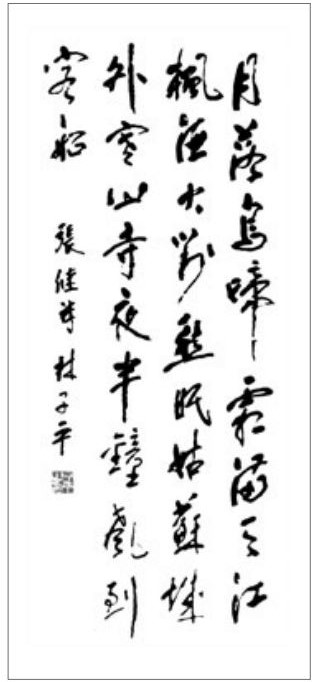 月落烏啼霜滿天江
楓漁火對愁眠姑蘇城
外寒山寺夜半鐘聲到
客船 張継詩 林子平